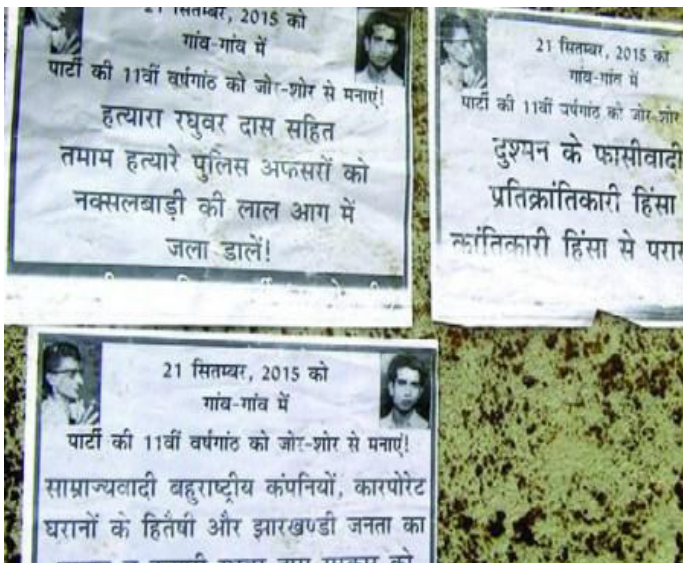 21 सितम्बर, 2015 को
गांव-गांव में
पार्टी की 11वीं वर्षगांठ को जोर-शोर से मनाएं!
हत्यारा रघुवर दास सहित
तमाम हत्यारे पुलिस अफसरों को
नक्सलबाड़ी की लाल आग में
जला डालें!
21 सितम्बर, 2015 को
गांव-गांव में
पार्टी की 11वीं वर्षगांठ को जोर-शोर
दुश्मन के फासीवादी
प्रतिक्रांतिकारी हिंसा
क्रांतिकारी हिंसा से
21 सितम्बर, 2015 को
गांव-गांव में
पार्टी की 11वीं वर्षगांठ को जोर-शोर से मनाएं!
साम्राज्यवादी बहुराष्ट्रीय कंपनियों, कारपोरेट
घरानों के हितैषी और झारखण्डी जनता का